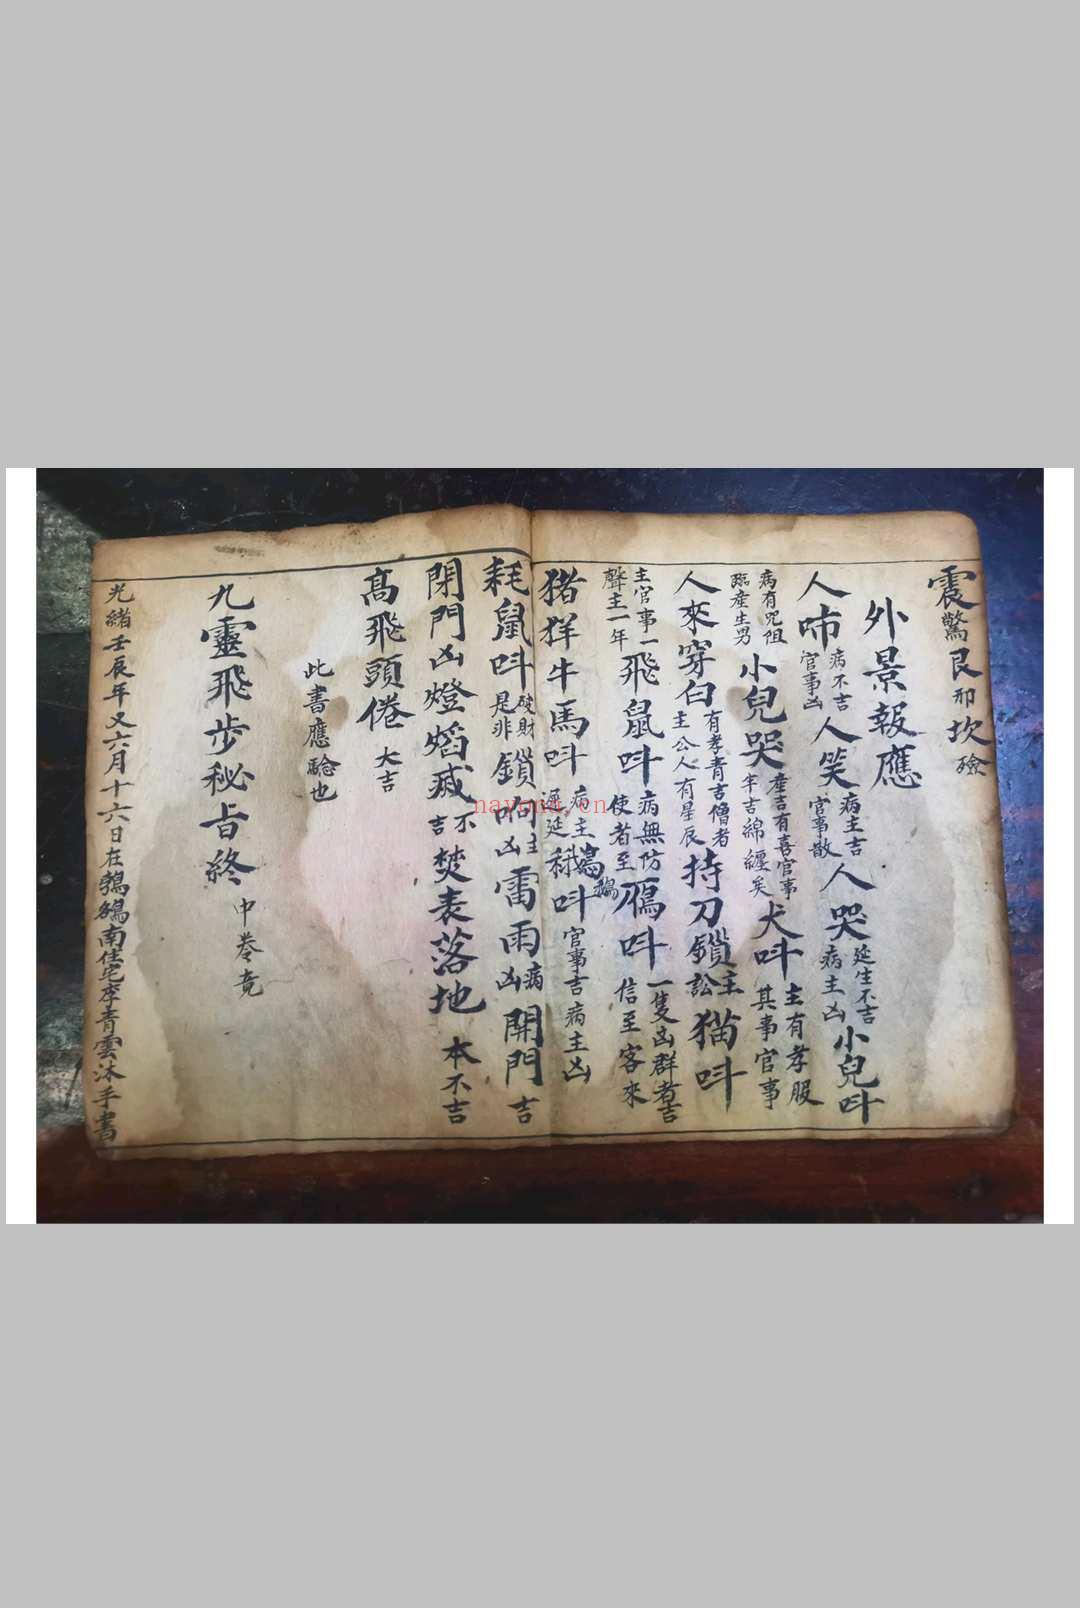 震驚艮卯坎險
外景報應
人啼病不吉官事凶人笑病主吉官事散人哭延生不吉病主凶小兒呌
病有咒阻臨産生男小兒哭産吉有喜官事半吉綿纏矣犬呌主有孝服其事官事
人來穿白有孝青吉僧者主公人有星辰持刀鎖主訟猫呌
主官事一聲主一年飛鼠呌病無防使者至鴈呌一隻凶群者吉信至客來
猪羊牛馬呌病主遲延鷄鵝呌官事吉病主凶
耗鼠呌破財是非鎖响主凶雷雨病凶開門吉
閉門凶燈熖烕不吉焚表落地本不吉
髙飛頭倦大吉
此書應驗也
九靈飛步秘旨終中卷竟
光緒壬辰年又六月十六日在鵓鴿南住宅李青雲沐手書
nayona.cn